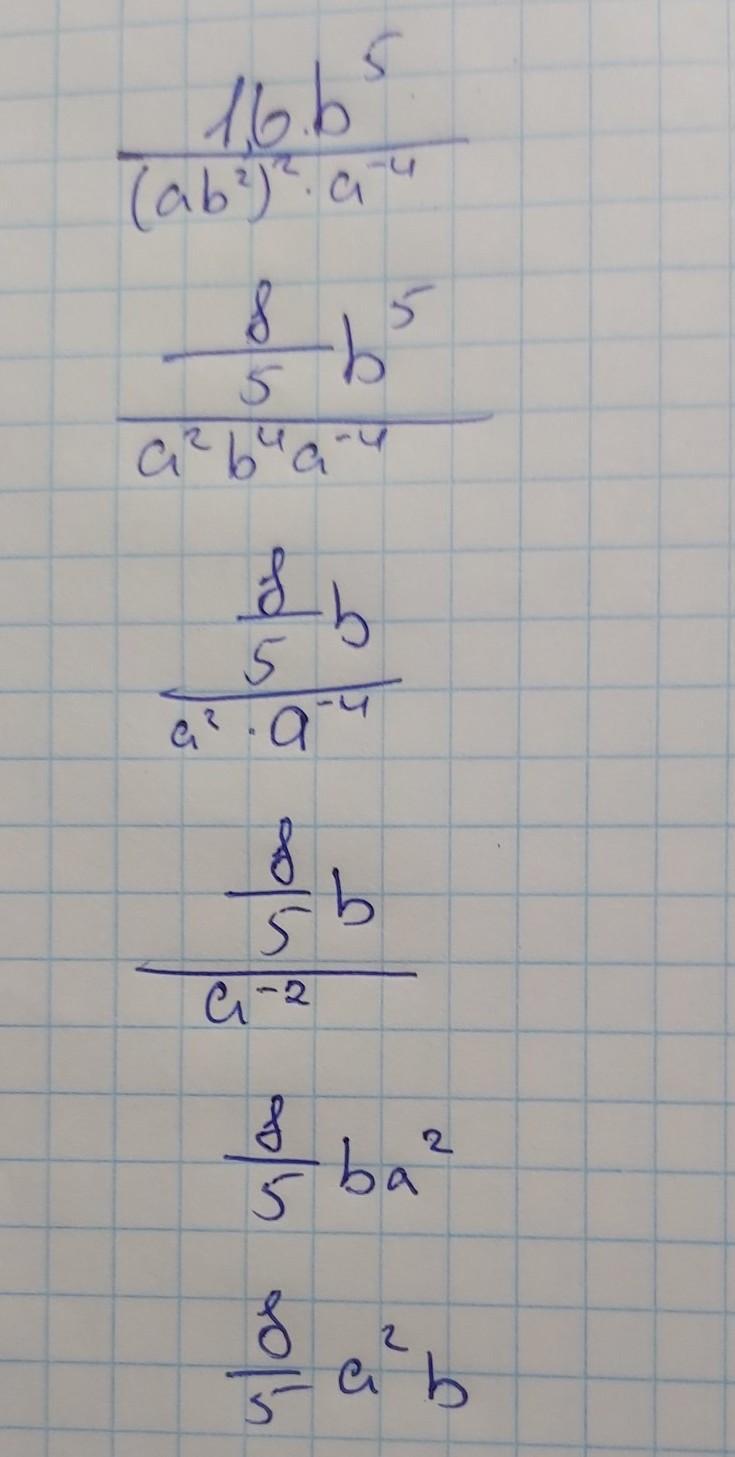 1,6·b⁵
(ab²)²·a⁻⁴
8
5 b⁵
a²b⁴a⁻⁴
8
5 b
a²·a⁻⁴
8
5 b
a⁻²
8
5 ba²
8
5 a²b